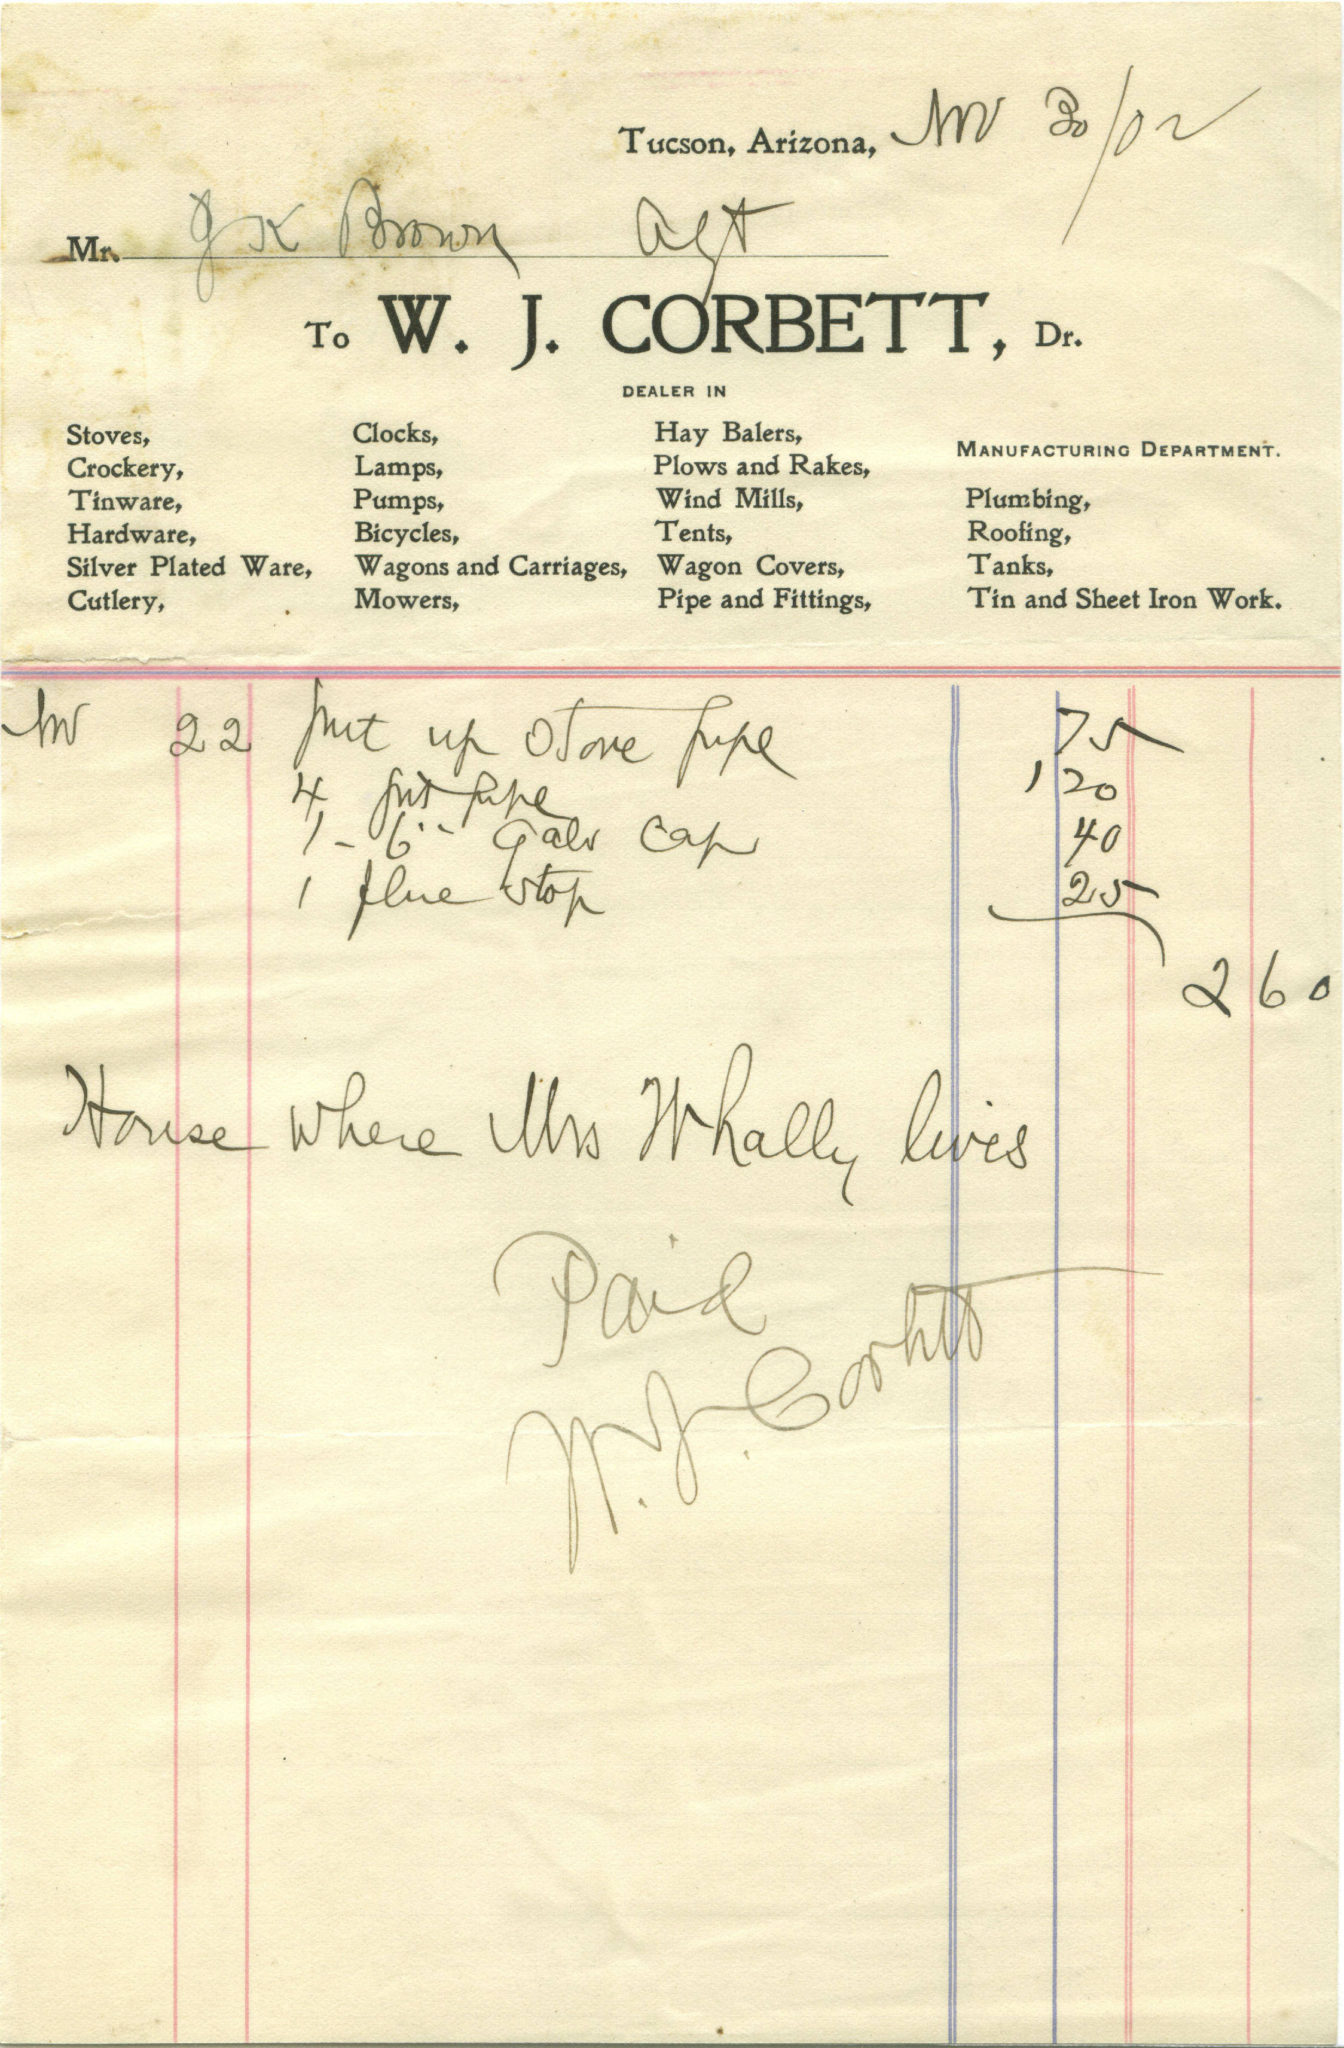 Tucson, Arizona, Nov 30/02
Mr. J K Brown Agt
To W. J. CORBETT, Dr.
DEALER IN
Stoves, Clocks, Hay Balers, MANUFACTURING DEPARTMENT.
Crockery, Lamps, Plows and Rakes,
Tinware, Pumps, Wind Mills, Plumbing,
Hardware, Bicycles, Tents, Roofing,
Silver Plated Ware, Wagons and Carriages, Wagon Covers, Tanks,
Cutlery, Mowers, Pipe and Fittings, Tin and Sheet Iron Work.
Nov 22 put up Stove pipe 75
4 pipe 1 20
1 - 6" Galv Cap 40
1 flue stop 25
2 60
House where Mrs Whally lives
Paid
W. J. Corbett